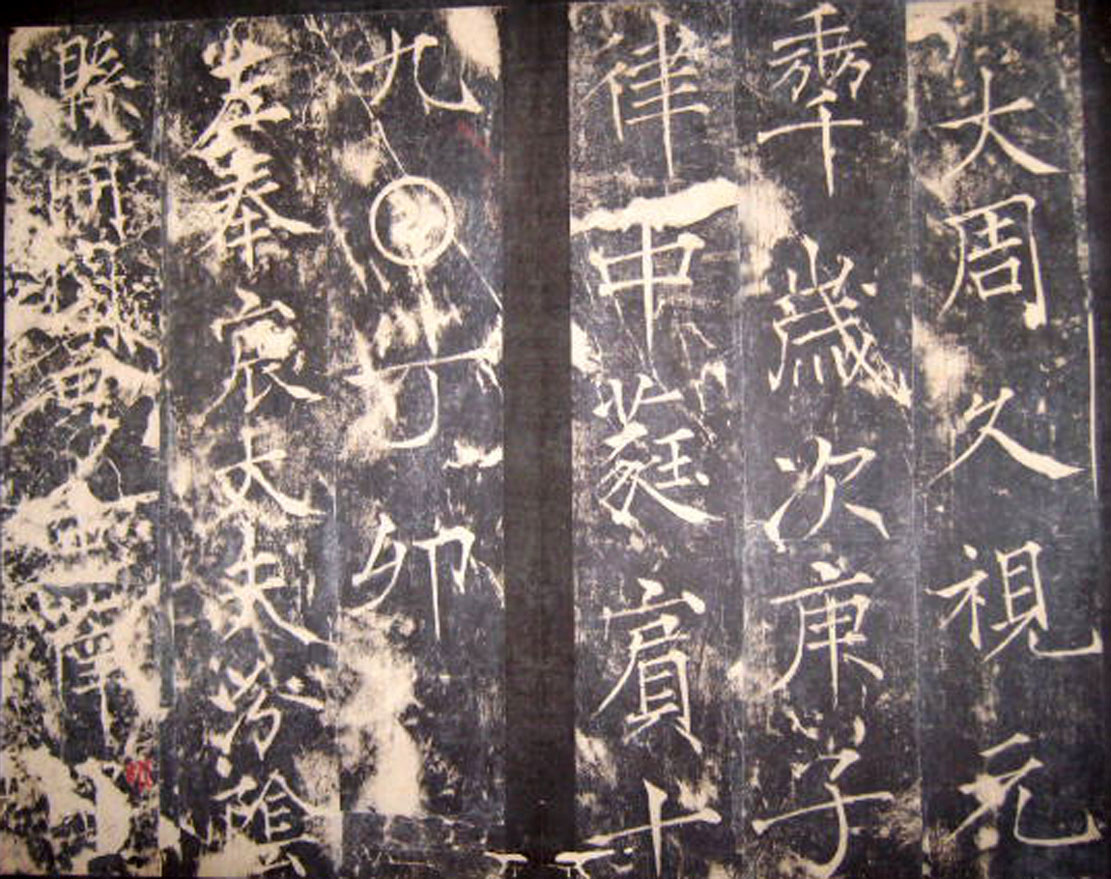 大周久視元
秊歲次庚子
律中蕤賓十
九〇丁卯
左奉宸大夫汾陰
縣開國男 薛